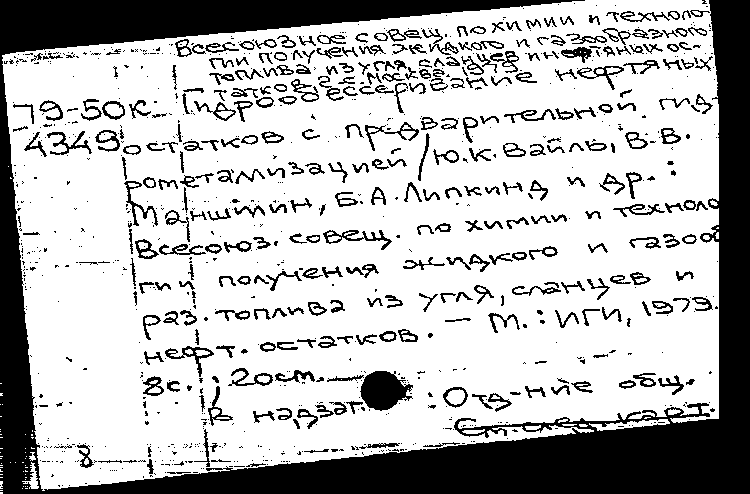 Всесоюзное совещ. по химии и техноло-
гии получения жидкого и газообразного
топлива из угля, сланцев и нефтяных ос-
татков, 2-е. Москва. 1979
79-50к Гидрообессеривание нефтяных
4349 остатков с предварительной гид-
рометаллизацией / Ю.К. Вайль, В.В.
Маншилин, Б.А. Липкинд и др. :
Всесоюз. совещ. по химии и техноло
гии получения жидкого и газооб
раз. топлива из угля, сланцев и
нефт. остатков. — М. : ИГИ, 1979.
8с. ; 20см.
В надзаг. : Отд-ние общ.
См. след. карт.
8